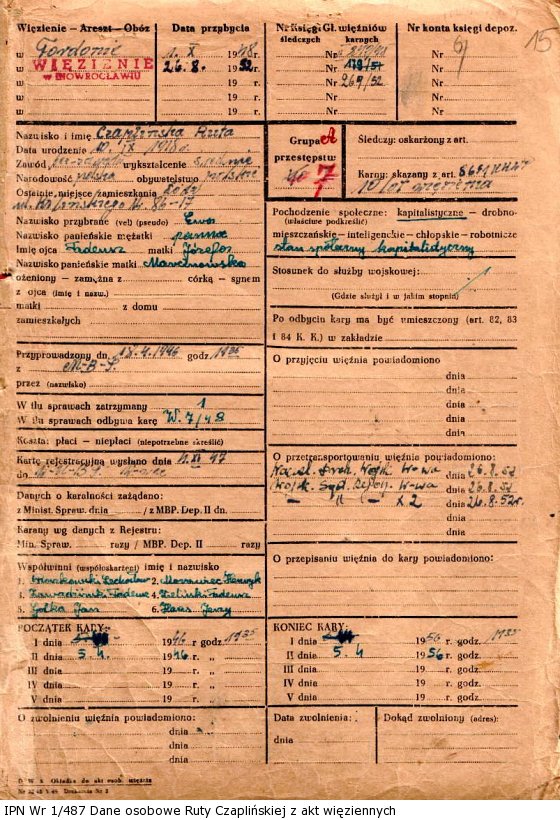 Więzienie — Areszt — Obóz
w Fordonie
w WIĘZIENIE
w INOWROCŁAWIU
w
w
Data przybycia
1. X 1948 r.
26.8. 1952 r.
19 r.
19 r.
Nr Księgi Gł. więźniów
śledczych karnych
Nr
Nr 179/51
Nr 269/52
Nr
Nr
Nr konta księgi depoz.
Nr
Nr
Nr
Nr
15
Nazwisko i imię Czaplińska Ruta
Data urodzenia 10. IX 1918 r.
Zawód wykształcenie średnie
Narodowość polska obywatelstwo polskie
Ostatnie miejsce zamieszkania Łódź
ul. 86-17
Nazwisko przybrane (vel) (pseudo) Ewa
Nazwisko panieńskie mężatki panna
Imię ojca Tadeusz matki Józefa
Nazwisko panieńskie matki Marcinowska
ożeniony — zamężna z córką — synem
z ojca (imię i nazw.)
matki z domu
zamieszkałych
Grupa
przestępstw
7
Śledczy: oskarżony z art.
Karny: skazany z art.
10 lat więzienia
Pochodzenie społeczne: kapitalistyczne — drobno-
(właściwe podkreślić)
mieszczańskie — inteligenckie — chłopskie — robotnicze
stan społeczny kapitalistyczny
Stosunek do służby wojskowej:
(Gdzie służył i w jakim stopniu)
Po odbyciu kary ma być umieszczony (art. 82, 83
i 84 K. K.) w zakładzie
Przyprowadzony dn. 18.4.1946 godz. 1935
z M-B-P.
przez (nazwisko)
W ilu sprawach zatrzymany 1
W ilu sprawach odbywa karę W. 7/48
Koszta: płaci — niepłaci (niepotrzebne skreślić)
Kartę rejestracyjną wysłano dnia 11. XI 47
do
Danych o karalności zażądano:
z Minist. Spraw. dnia / z MBP. Dep. II dn.
Karany wg danych z Rejestru:
Min. Spraw. razy / MBP. Dep. II razy
O przyjęciu więźnia powiadomiono
dnia
dnia
dnia
dnia
O przetransportowaniu więźnia powiadomiono:
W-wa dnia 26.8.52
Wojsk. Sąd. Rejon. W-wa dnia 26.8.52
— " — x 2 dnia 26.8.52r.
O przepisaniu więźnia do kary powiadomiono:
dnia
dnia
Współwinni (współoskarżeni) imię i nazwisko
1. Lechosław 2. Henryk
3. Tadeusz 4. Zieliński Tadeusz
5. Golka Jan 6. Haus Jerzy
POCZĄTEK KARY:
I dnia 1946 r. godz. 1935
II dnia 5. 4. 1946 r. „
III dnia 19 r. „
IV dnia 19 r. „
V dnia 19 r. „
KONIEC KARY:
I dnia 1956 r. godz. 1935
II dnia 5. 4 1956 r. godz.
III dnia 19 r. godz.
IV dnia 19 r. godz.
V dnia 19 r. godz.
O zwolnieniu więźnia powiadomiono:
dnia
dnia
dnia
Data zwolnienia:
dnia
Dokąd zwolniony (adres):
D. W. S. Okładka do akt osob. więźnia
IPN Wr 1/487 Dane osobowe Ruty Czaplińskiej z akt więziennych